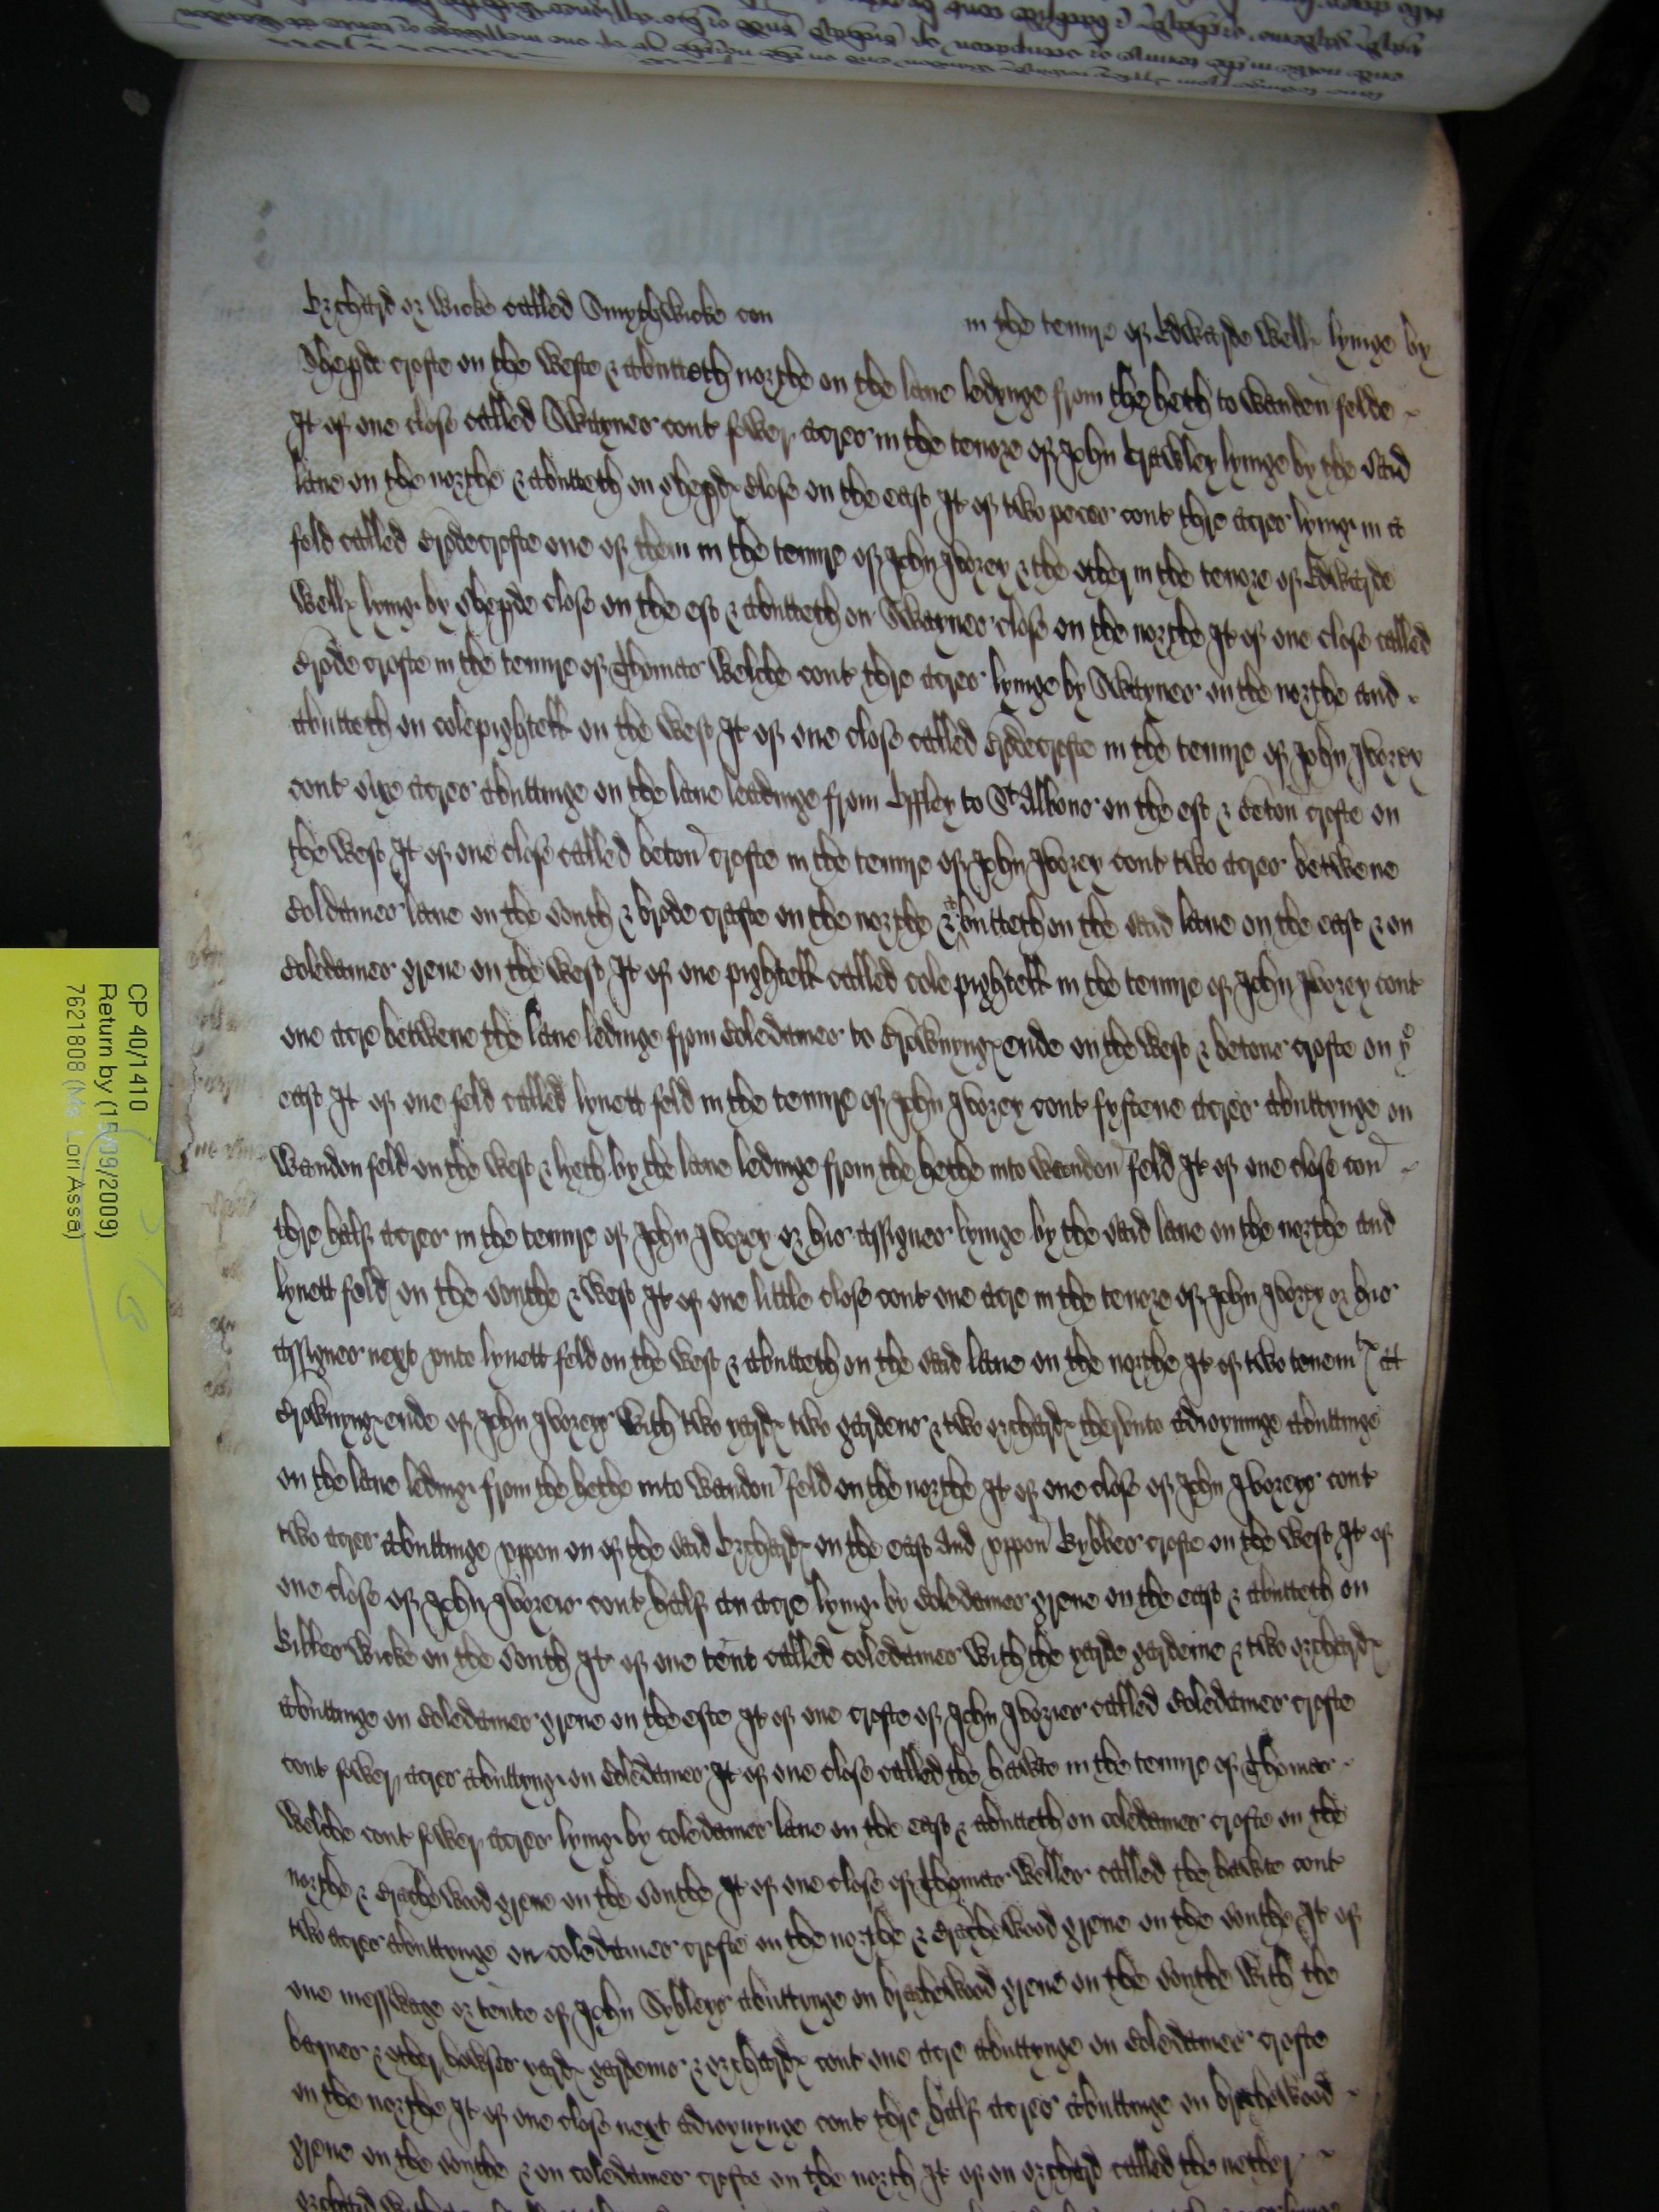 Orchard or Wicke called Smythwicke con in the tenure of Edwarde Wells lyinge by
Shepde crofte on the Weste & abutteth northe on the lane ledynge from the heth to Wandon felde
It of one close called Swaynes cont fower acres in the tenore of John Crawley lyinge by the said
lane on the northe & abutteth on shepds close on the east It of two peces cont thre acres lying in a
feld called Brodecrofte one of them in the tenure of John Ivorey & the other in the tenore of Edwarde
Wells lying by Shepde close on the est & abutteth on Swaynes close on the northe It of one close called
Brode crofte in the tenure of Thomas Welche cont thre acres lyinge by Swaynes on the northe and
abutteth on colepightell on the West It of one close called Brodecrofte in the tenure of John Ivorey
cont sixe acres abuttinge on the lane leadinge from Offley to St Albons on the est & Beton crofte on
the West It of one close called beton crofte in the tenure of John Ivorey cont two acres betwene
Coldamer lane on the south & brode crafte on the northe & abutteth on the said lane on the east & on
Coledamer grene on the West It of one pightell called cole pightell in the tenure of John Ivorey cont
one acre betwene the lane ledinge from Coledamer to Crawnyngs ende on the West & betons crofte on ye
east It of one feld called lynett feld in the tenure of John Ivorey cont fyftene acres abuttynge on
Wandon feld on the West & lieth by the lane ledinge from the hethe into Wandon feld It of one close con
thre half acres in the tenure of John Ivorey or his assignes lyinge by the said lane on the northe and
lynett feld on the southe & West It of one little close cont one acre in the tenore of John Ivorey or his
assignes next unto lynett feld on the West & abutteth on the said lane on the northe It of two tenemts att
Crawnyngs ende of John Ivoreys With two yards two gardens & two orchards therunto adioyninge abuttinge
on the lane leding from the hethe into Wandon feld on the northe It of one close of John Ivoreys cont
two acres abuttinge uppon on of the said Orchards on the east And uppon Bybbes crofte on the West It of
one close of John Ivoreis cont half an acre lying by Coledamer grene on the east & abutteth on
Bibbes Wicke on the south It of one tent called coledamer With the yarde gardeine & two orchards
abuttinge on Coledamer grene on the este It of one crofte of John Ivories called Coledamer crofte
cont fower acres abuttyng on Coledamer It of one close called the hawte in the tenure of Thomas
Welche cont fower acres lying by coledamer lane on the east & abutteth on coledamer crofte on the
northe & Brache Wood grene on the southe It of one close of Thomas Welles called the hawte cont
two acres abuttynge on coledamer crofte on the northe & Brache Wood grene on the southe It of
one messwage or tente of John Sybleys abuttynge on brache Wood grene on the southe With the
barnes & other howses yards gardeins & orchards cont one acre abuttynge on Coledamer crofte
on the northe It of one close next adioynynge cont thre half acres abuttinge on brache Wood
grene on the southe & on coledamer crofte on the north It of on orchard called the nether
CP 40/1410
Return by (15/09/2009)
7621808 (Ms Lori Assa)